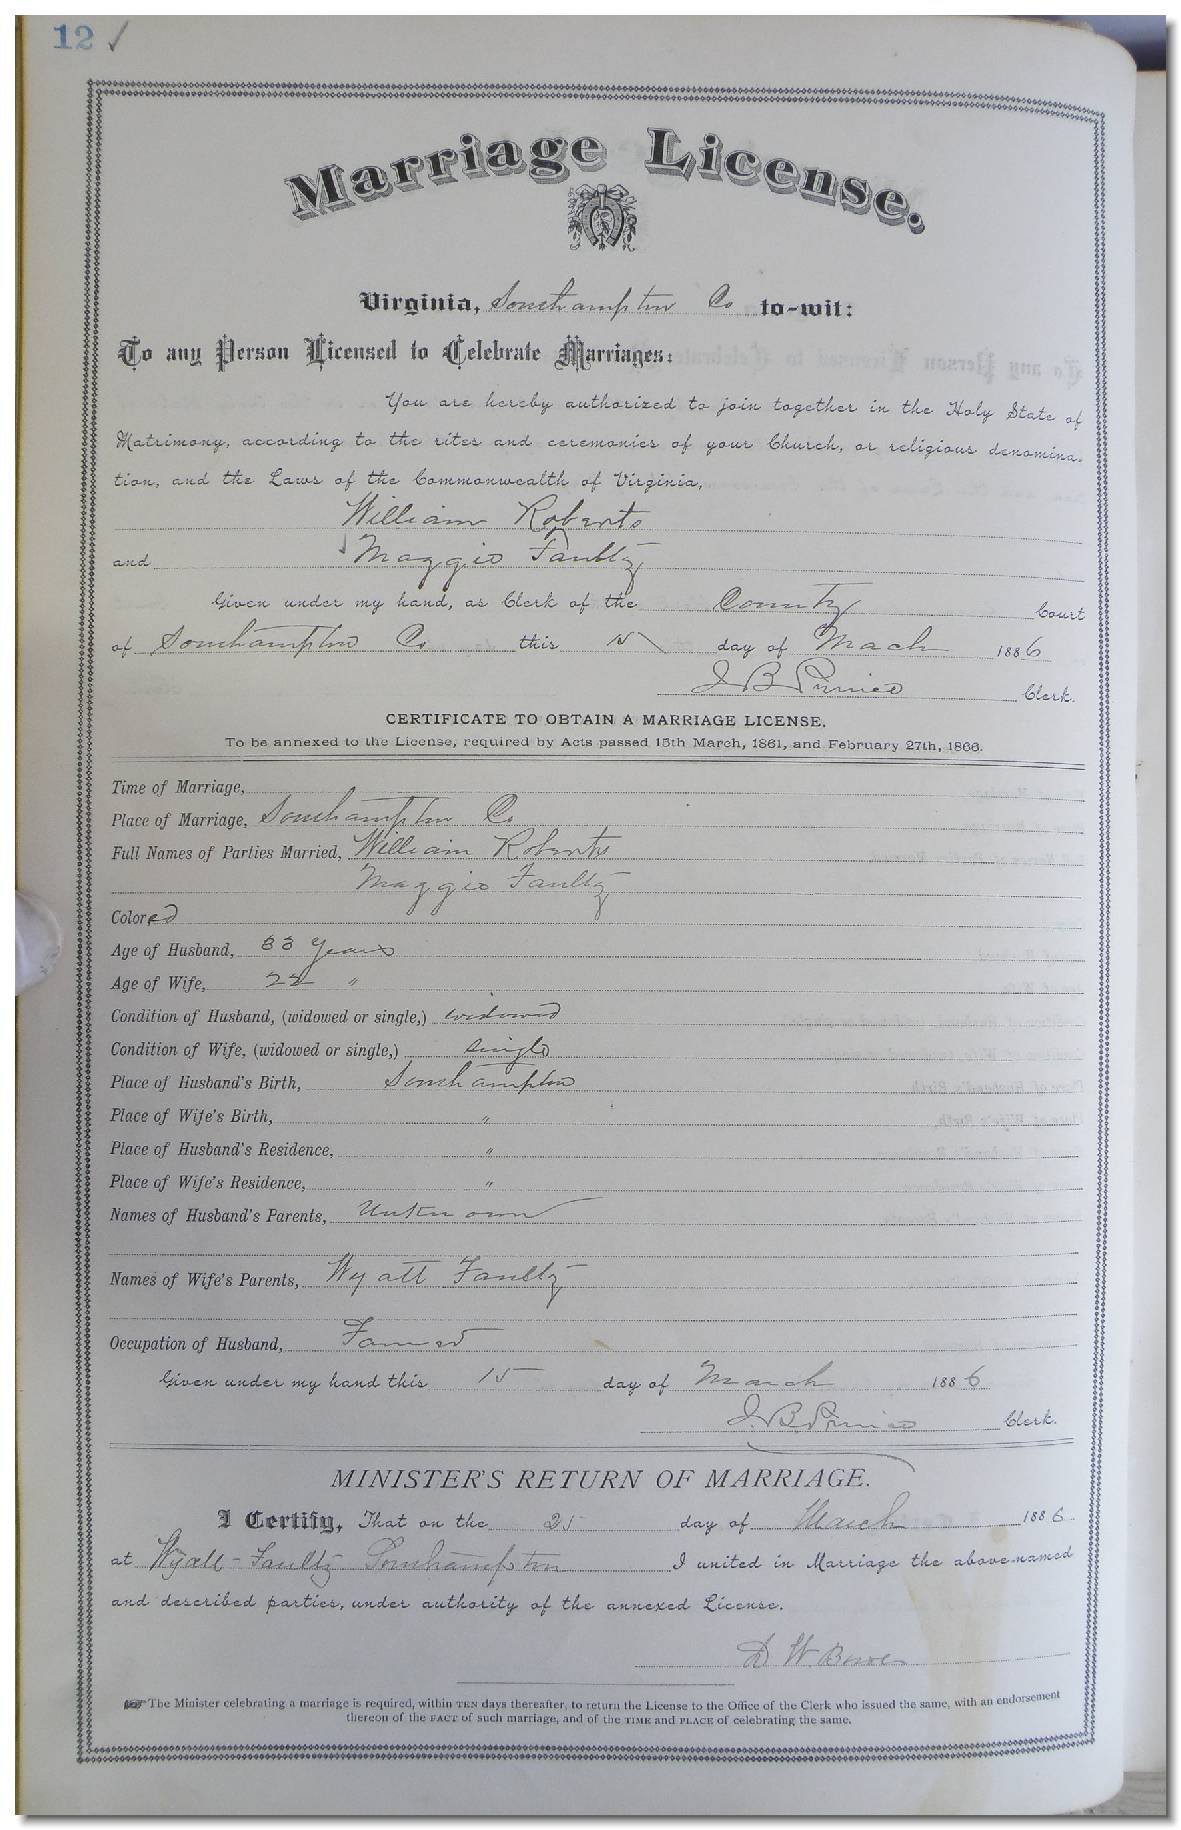 12 ✓
Marriage License.
Virginia, Southampton Co to-wit:
To any Person Licensed to Celebrate Marriages:
You are hereby authorized to join together in the Holy State of
Matrimony, according to the rites and ceremonies of your Church, or religious denomina-
tion, and the Laws of the Commonwealth of Virginia,
William Roberts
and Maggie Faulty
Given under my hand, as Clerk of the County Court
of Southampton Co this 15 day of March 1886
J B Prince Clerk.
CERTIFICATE TO OBTAIN A MARRIAGE LICENSE.
To be annexed to the License, required by Acts passed 15th March, 1861, and February 27th, 1866.
Time of Marriage,
Place of Marriage, Southampton Co
Full Names of Parties Married, William Roberts
Maggie Faulty
Colored
Age of Husband, 33 years
Age of Wife, 22 "
Condition of Husband, (widowed or single,) widowed
Condition of Wife, (widowed or single,) single
Place of Husband's Birth, Southampton
Place of Wife's Birth, "
Place of Husband's Residence, "
Place of Wife's Residence, "
Names of Husband's Parents, Unknown
Names of Wife's Parents, Wyatt Faulty
Occupation of Husband, Farmer
Given under my hand this 15 day of March 1886
J. B. Prince Clerk.
MINISTER'S RETURN OF MARRIAGE.
I Certify, That on the 25 day of March 1886
at Wyatt-Faulty Southampton I united in Marriage the above-named
and described parties, under authority of the annexed License.
D W
The Minister celebrating a marriage is required, within TEN days thereafter, to return the License to the Office of the Clerk who issued the same, with an endorsement
thereon of the FACT of such marriage, and of the TIME and PLACE of celebrating the same.